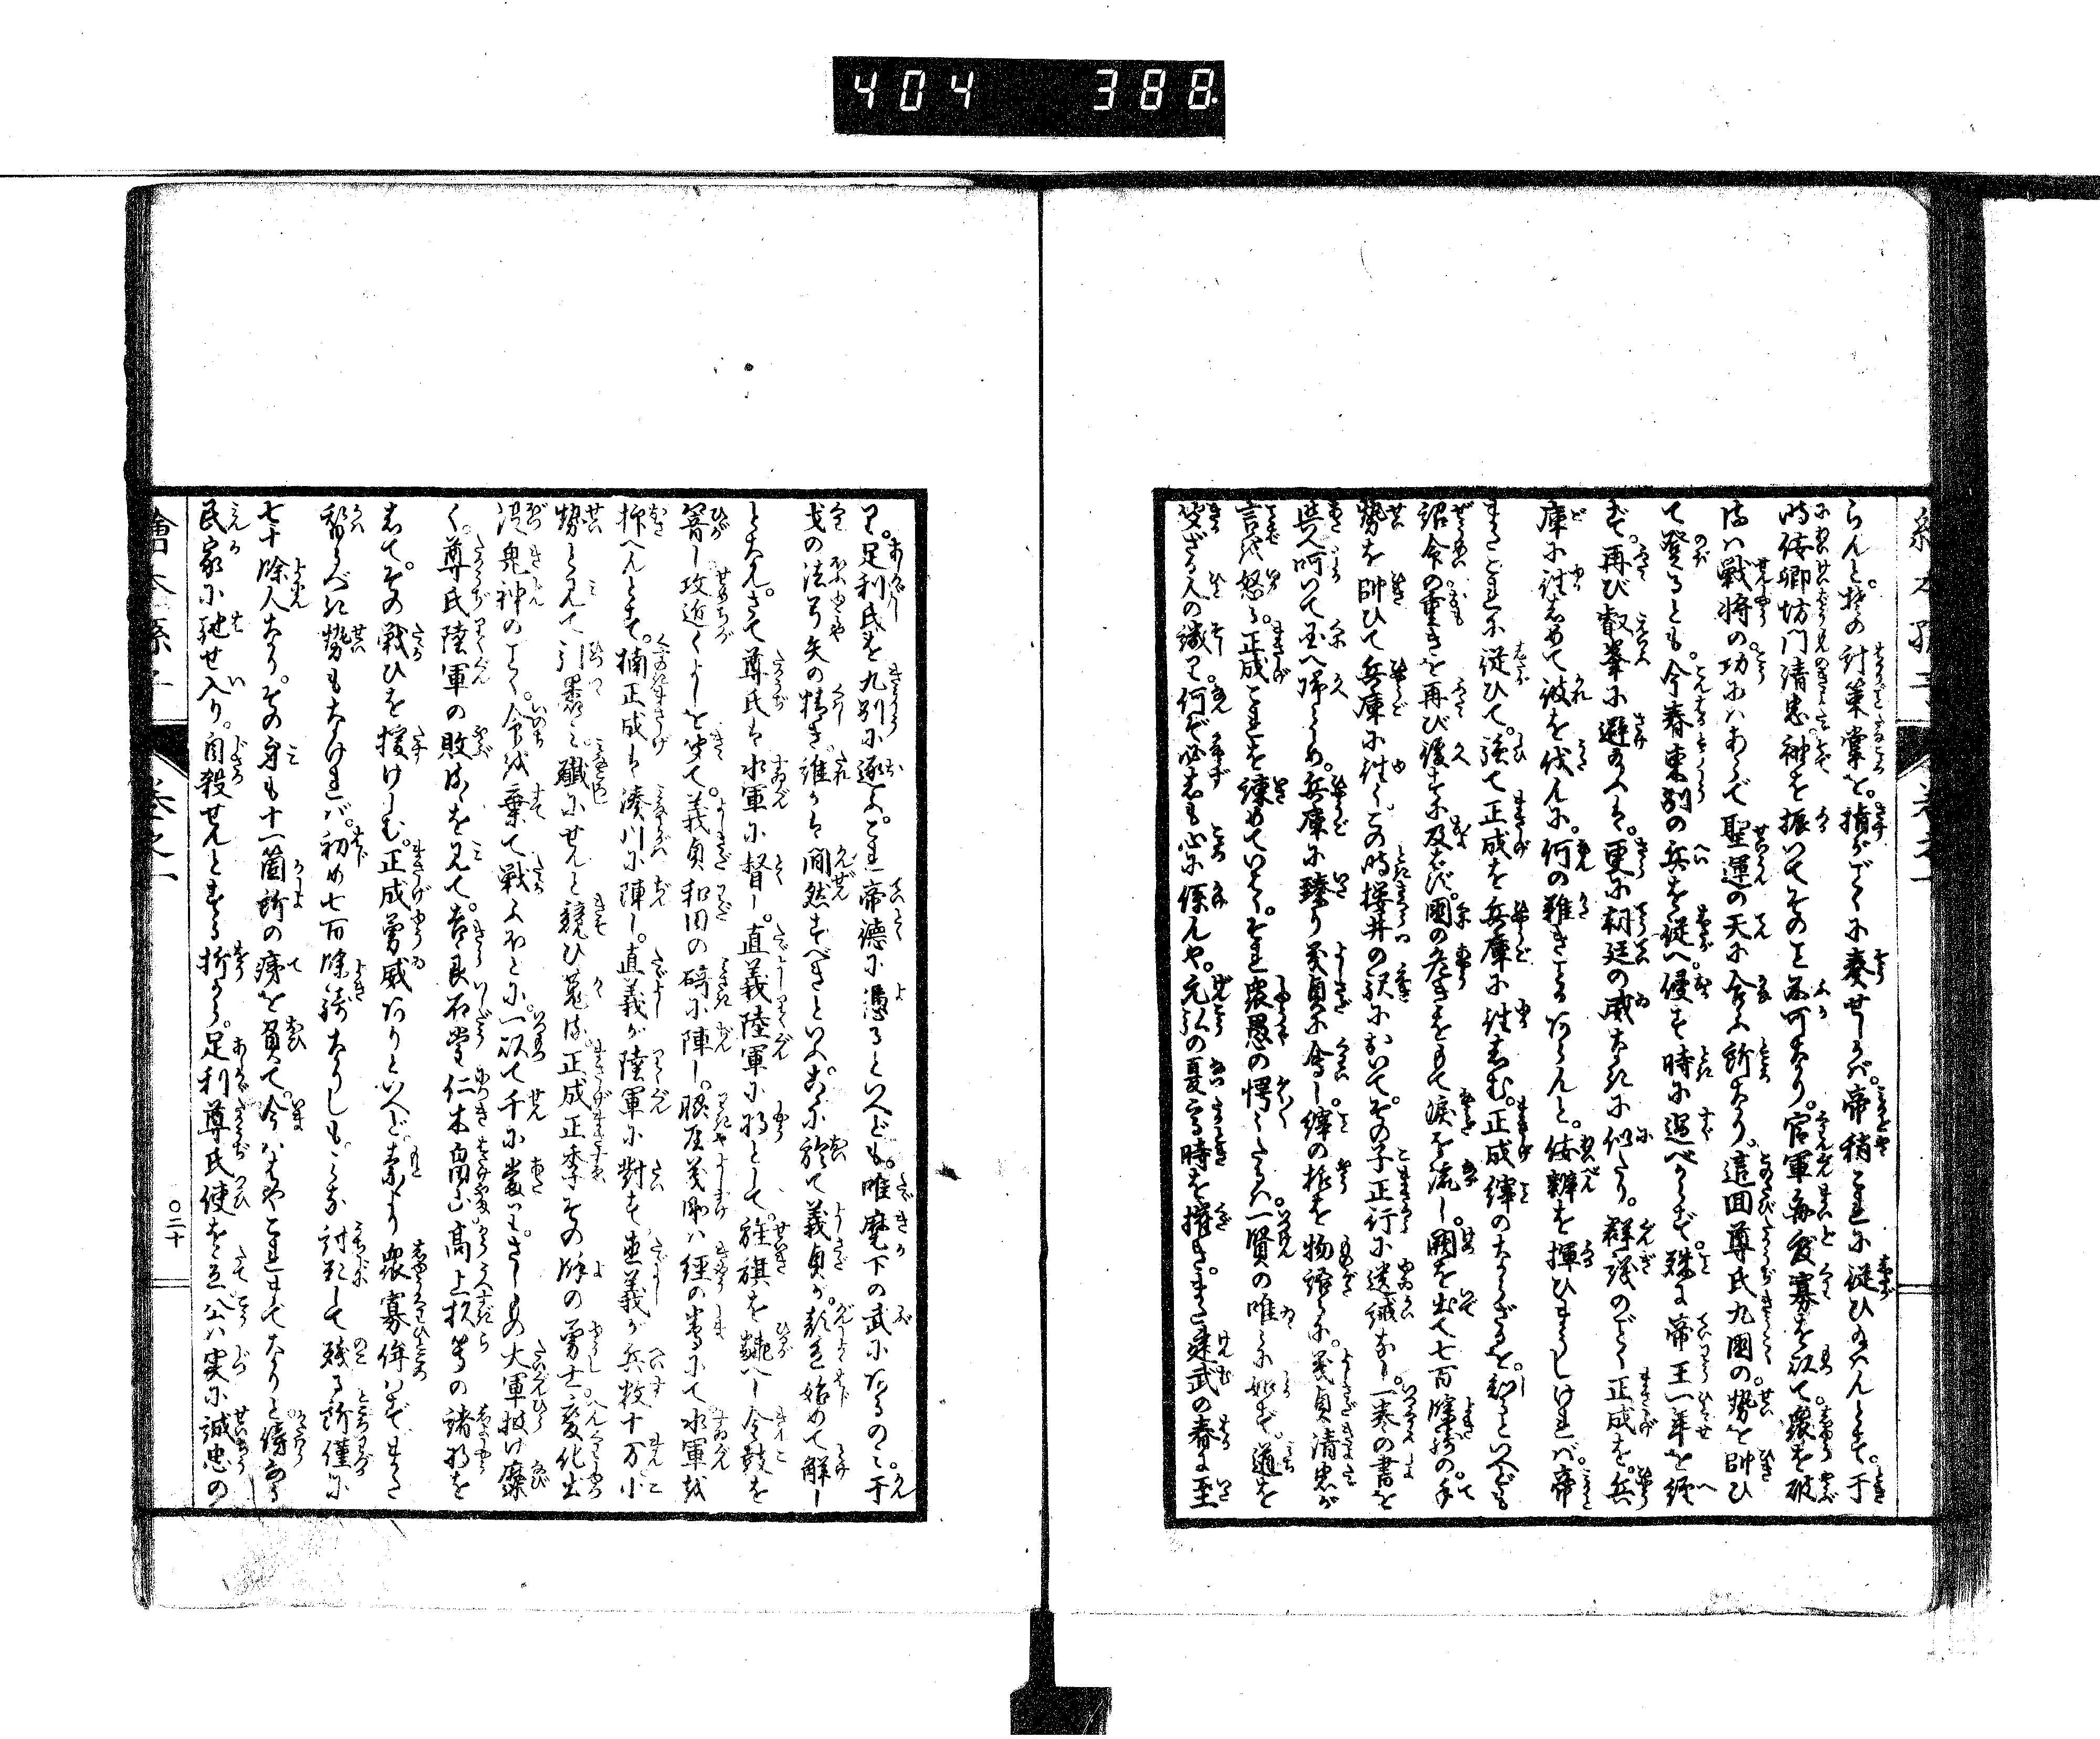 404 388
らんと。其の計策掌を。指がごくに奏せしかバ。帝稍これに従ひ給ハんとす。于
時佞卿坊門清忠。神を振いてそのこと不可なり。官軍毎度寡を以て衆を破
るハ戦将の。功にハあらで聖運の天に合ふ所なり。這回尊氏九国の。勢を帥ひ
て登るとも。今春東国の兵を従へ侵す時に過べからず。殊に帝王一年を経
ず。再び叡峯に避給ふハ。更に朝廷の威なきに似たり。群議のごとく正成を。兵
庫に往しめて彼を伐んに。何の難きことかあらんと。佞辯を揮ひまうしければ。帝
またこれに従ひて。強て正成を兵庫に往しむ。正成縡のならざるを。知るといへども
詔令の重きを再び復すに及ばず。国の危きをもて涙を流し。闕を出て七百騎の。手
勢を帥ひて兵庫に往く。この時桜井の駅において。その子正行に遺誡なし。一巻の書を
與へ呵いて国へ帰らしめ。兵庫に臻り義貞に会し。縡の推を物語るに。義貞清忠が
言を怒る。正成これを諫めていはく。それ衆愚の愕々たるハ。一賢の唯々に如ず。道を
交ざる人の譏り。何ぞ必しも心に係んや。元弘の夏する時を撰き。また建武の春に至
り。足利氏を九州に逐ふ。これ帝徳に憑るといへども。唯麾下の武にあるのミ。于
戈の法弓矢の精き。誰かは間然すべきといふ。ここに於て義貞が。顔色始めて解し
となん。さて尊氏は水軍に督し。直義陸軍に将として。旌旗を靡へし金鼓を
響し攻近くよしを聞て。義貞和田の碕に陣し。脇屋義助ハ経の嶋にて。水軍を
抑へんとす。楠正成は湊川に陣し。直義が陸軍に對す直義が兵数十万小
勢と見て引裹ミ。殲にせんと競ひ蒐る。正成正季その余の勇士変化出
没鬼神のごとく。命を棄て戦ふほどに。一以て千に當る。さしもの大軍披け靡
く。尊氏陸軍の敗るるを見て。吉良石堂仁木畠山高上杉等の諸将を
して。その戦ひを援けしむ。正成勇威ありといへど。素より衆寡侔ハずまた
契るべき勢もなければ。初め七百余騎なりしも。ミな討死して残る所僅に
七十余人なり。その身も十一箇所の痍を負て。今ハはやこれまでなりと傍なる
民家に馳せ入り。自殺せんとする折から。足利尊氏使を立公ハ実に誠忠の
繪本孫子
巻之一
〇二十